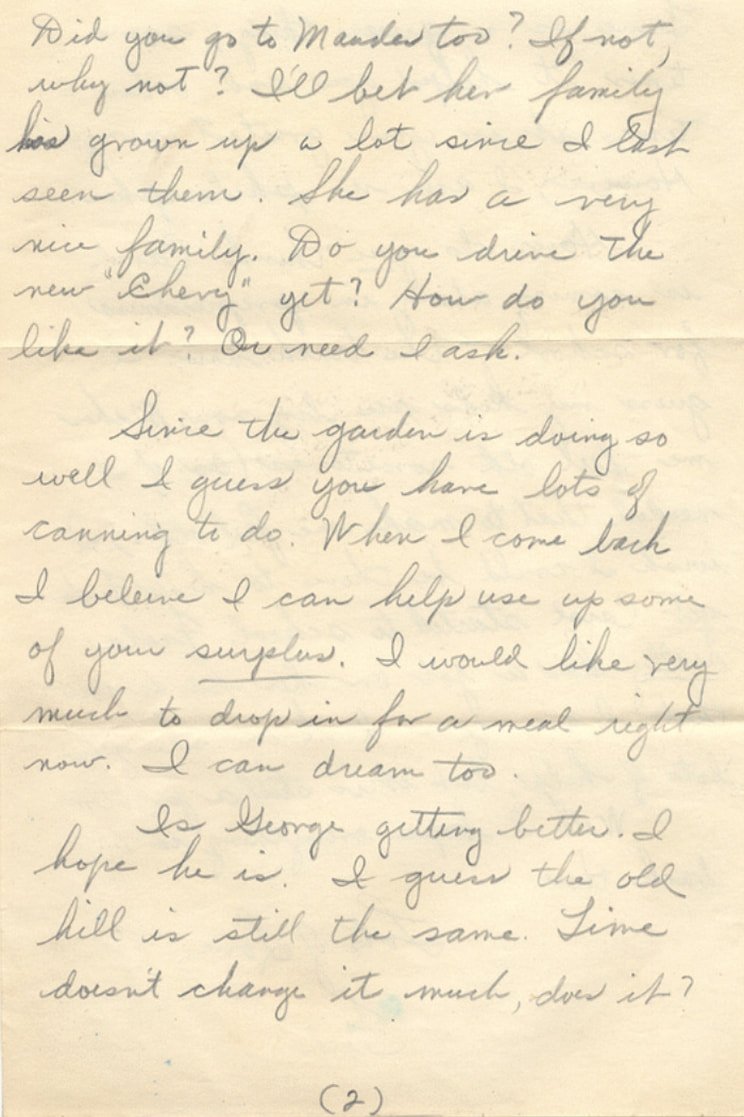 Did you go to Maudes too? If not,
why not? I'll bet her family
has grown up a lot since I last
seen them. She has a very
nice family. Do you drive the
new "Chevy" yet? How do you
like it? Or need I ask.
Since the garden is doing so
well I guess you have lots of
canning to do. When I come back
I beleive I can help use up some
of your surplus. I would like very
much to drop in for a meal right
now. I can dream too.
Is George getting better. I
hope he is. I guess the old
hill is still the same. Time
doesn't change it much, does it?
(2)